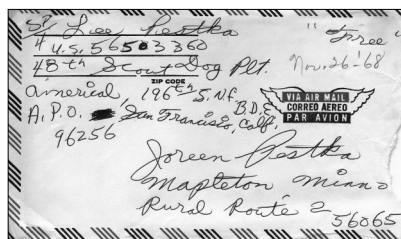 Sp/4 Lee Pestka "Free"
U.S. 56503360
48th Scout Dog Plt. Nov. 26-'68
ZIP CODE
Americal, 196th S. Nf. B.D.E
A.P.O. San Francisio, Calf.
96256
VIA AIR MAIL
CORREO AEREO
PAR AVION
Joreen Pestka
Mapleton Minn
Rural Route 2
56065